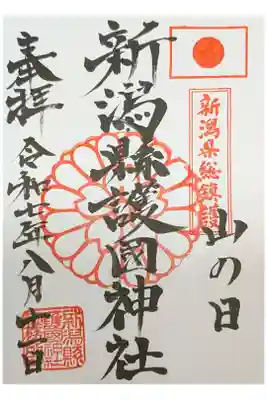 新潟県総鎮護
山の日
新潟縣護國神社
奉拝
令和七年八月十一日